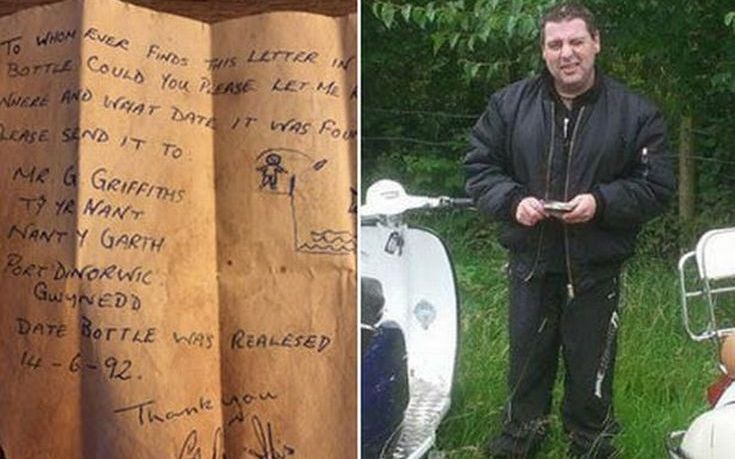 TO WHOM EVER FINDS THIS LETTER IN
BOTTLE COULD YOU PLEASE LET ME
WHERE AND WHAT DATE IT WAS FOU
PLEASE SEND IT TO
MR G GRIFFITHS
TY YR NANT
NANT Y GARTH
PORT DINORWIC
GWYNEDD
DATE BOTTLE WAS REALESED
14-6-92.
Thank you